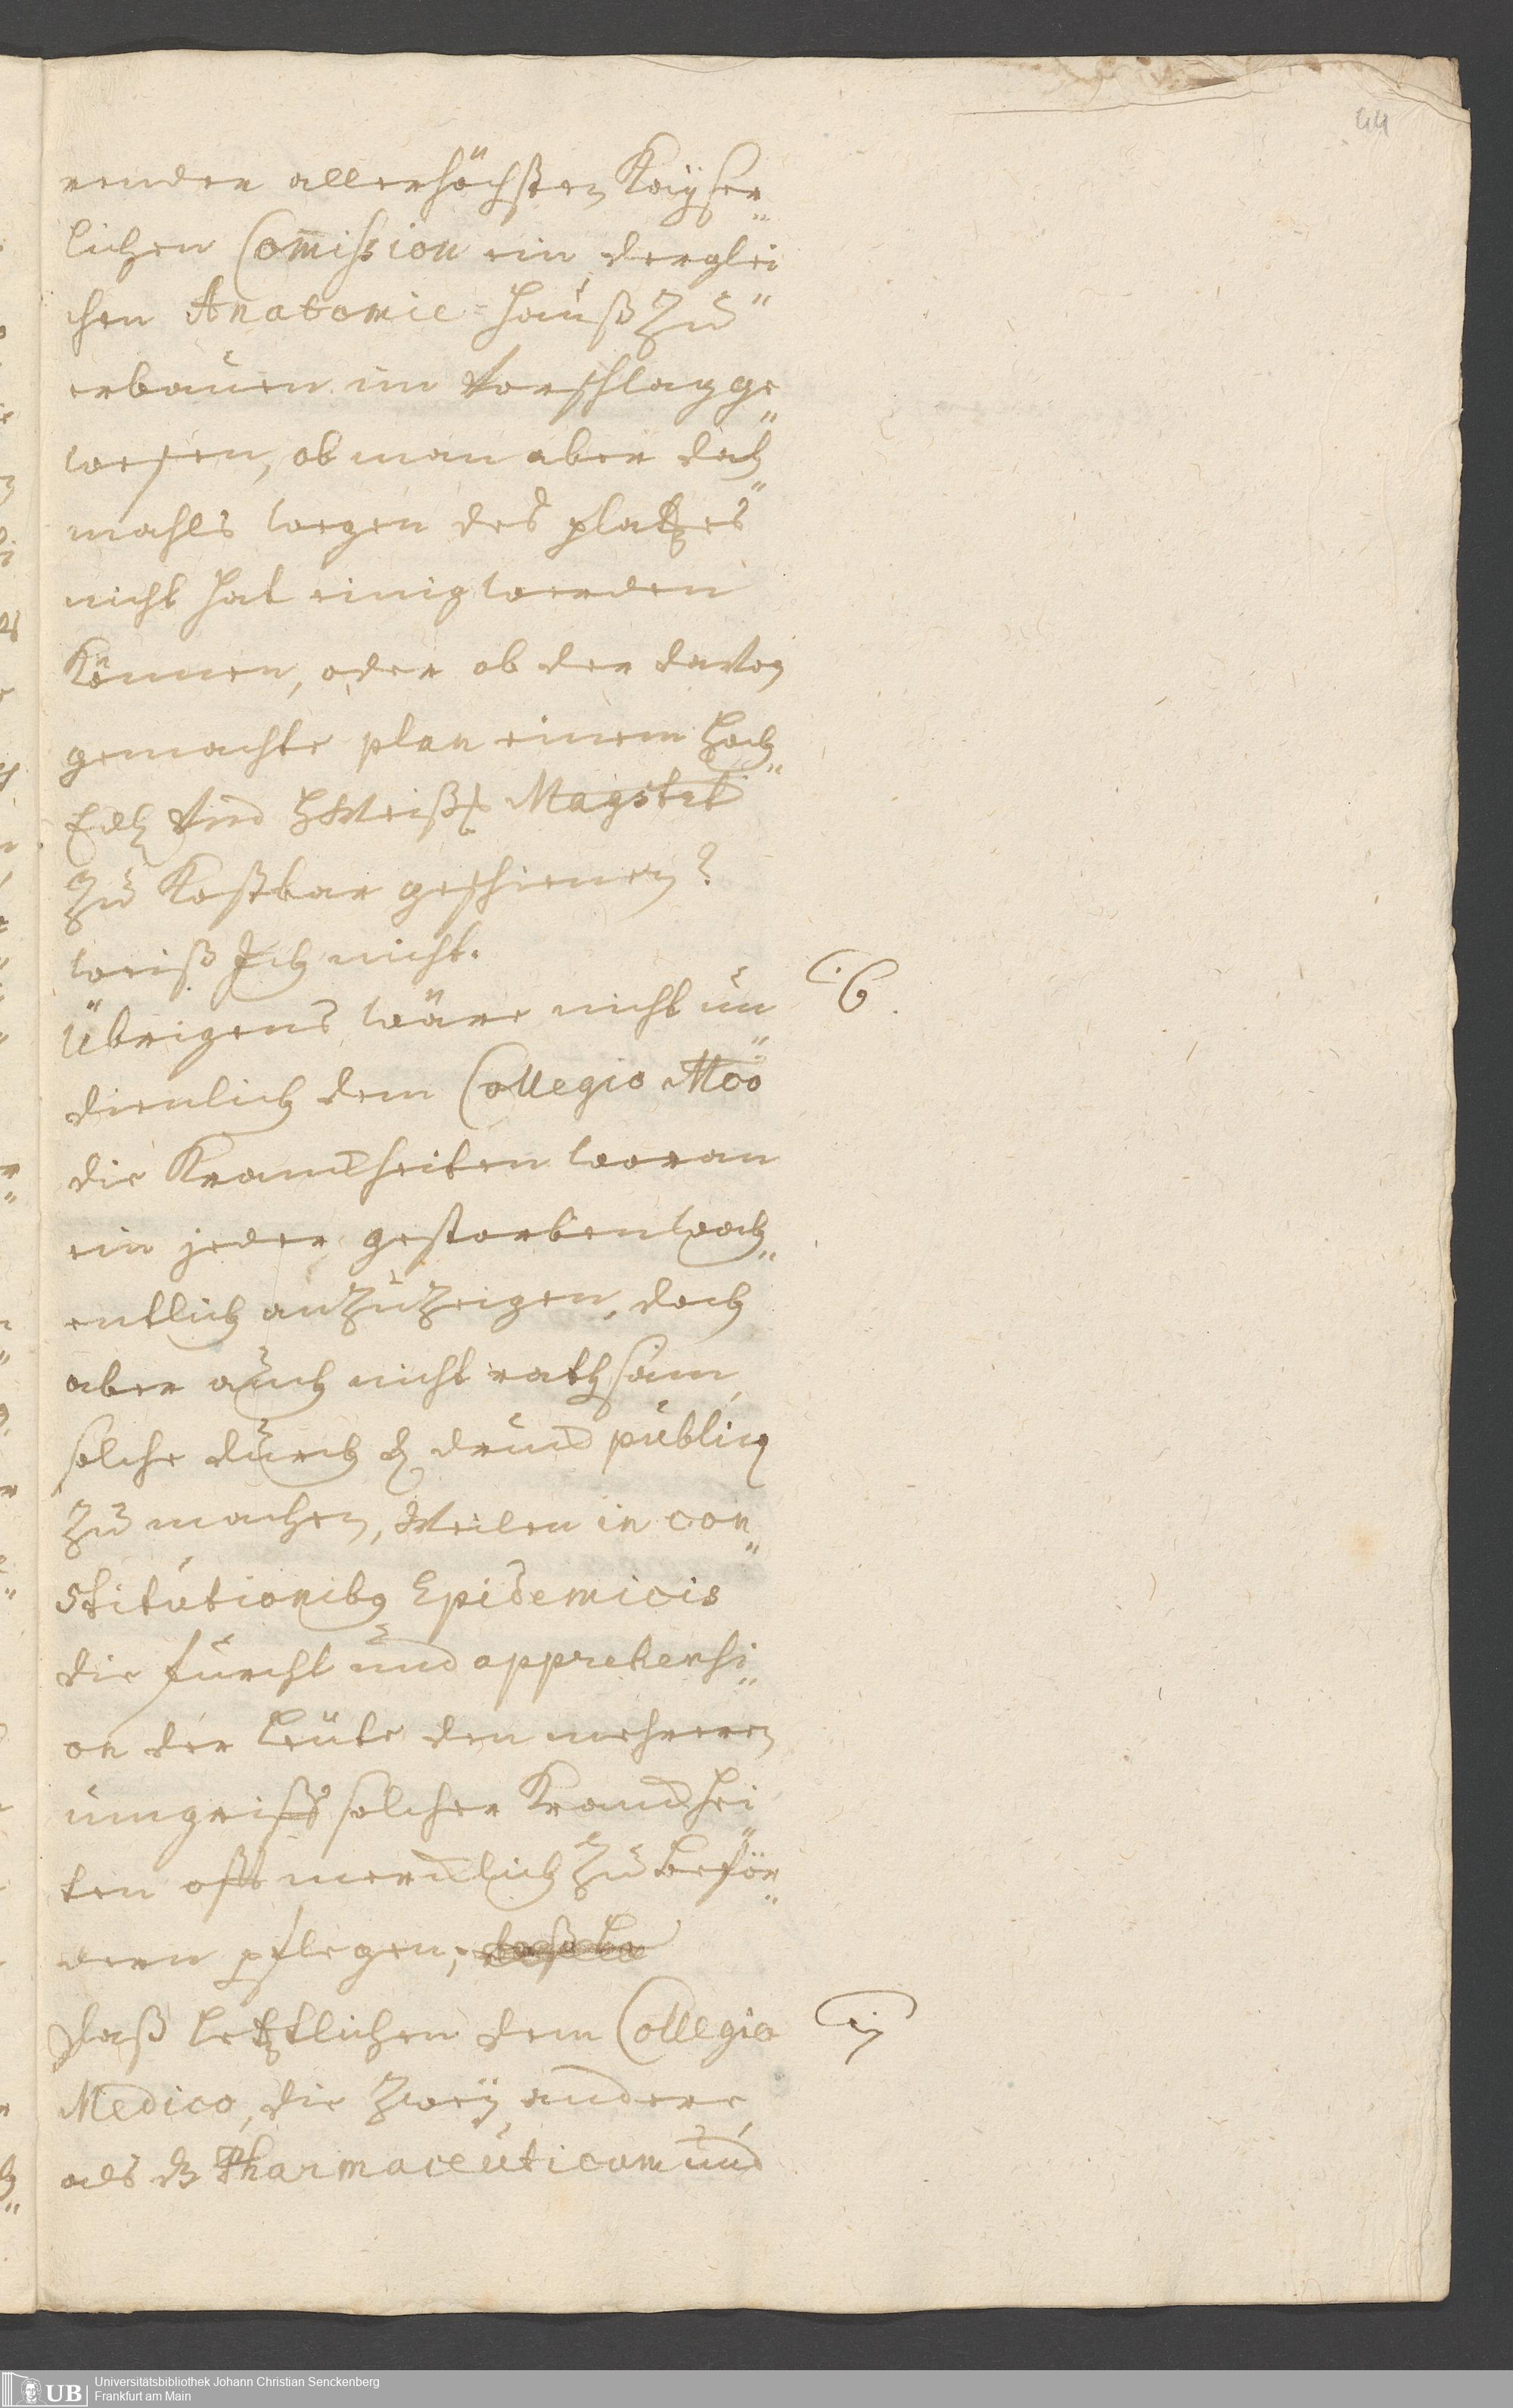 44
renden allerhöchsten Kaÿser„
lichen Com̅ission ein derglei„
chen Anatomie-Hauß zu
erbauen im Vorschlag ge„
wesen, ob man aber dah„
mahls wegen des platzes
nicht hat einig werden
Können, oder ob der davon
gemachte plan einem Hoch„
Edl. Und Magstrt
zu Kostbar geschienen?
weiß Ich nicht.
Übrigens wäre nicht un„
6.
dienlich dem Collegio Mco
die Kranckheiten woran
ein jeder gestorben wöch„
entlich anzuzeigen, doch
aber auch nicht rathsam,
solche durch d. druck public
zu machen, Weilen in con„
stitutionibq Epidemicis
die furcht und apprehensi„
on der Leute den mehreren
umgriff solcher Kranckhei„
ten offt mercklich zu beför„
dern pflegen;
Daß Letztlichen dem Collegio
Medico, die zweÿ andere,
als dz Pharmaceuticum und
Universitätsbibliothek Johann Christian Senckenberg
Frankfurt am Main
UB